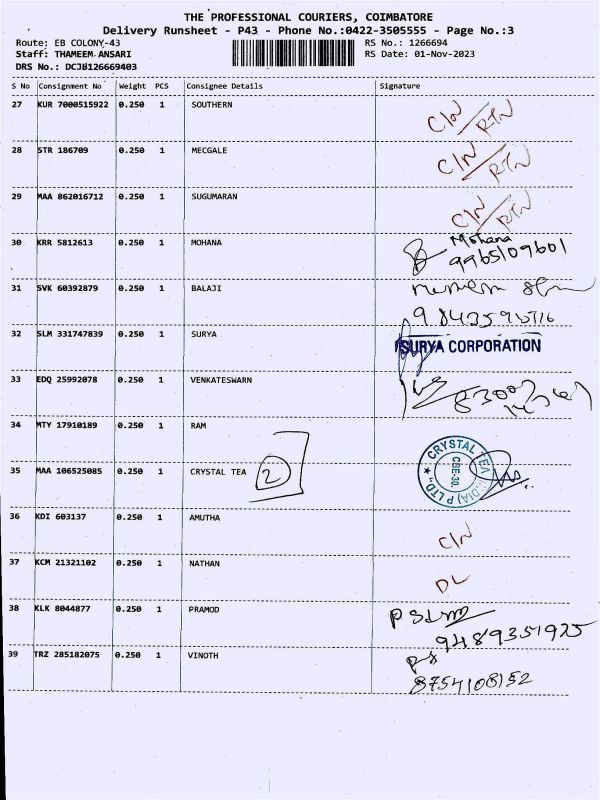 THE PROFESSIONAL COURIERS, COIMBATORE
Delivery Runsheet - P43 - Phone No.:0422-3505555 - Page No.:3
Route: EB COLONY-43
RS No.: 1266694
Staff: THAMEEM ANSARI
RS Date: 01-Nov-2023
DRS No.: DCJB126669403
S No Consignment No Weight PCS Consignee Details Signature
27 KUR 7000515922 0.250 1 SOUTHERN C/N/RTN
28 STR 186709 0.250 1 MECGALE C/N/RTN
29 MAA 862016712 0.250 1 SUGUMARAN C/N/RTN
30 KRR 5812613 0.250 1 MOHANA Mohana
9965109601
31 SVK 60392879 0.250 1 BALAJI
32 SLM 331747839 0.250 1 SURYA SURYA CORPORATION
33 EDQ 25992078 0.250 1 VENKATESWARN
34 MTY 17910189 0.250 1 RAM
35 MAA 106525085 0.250 1 CRYSTAL TEA 2 CRYSTAL TEA (INDIA) P LTD. CBE-30.
36 KDI 603137 0.250 1 AMUTHA C/N
37 KCM 21321102 0.250 1 NATHAN DL
38 KLK 8044877 0.250 1 PRAMOD
9489351925
39 TRZ 285182075 0.250 1 VINOTH
8754108152